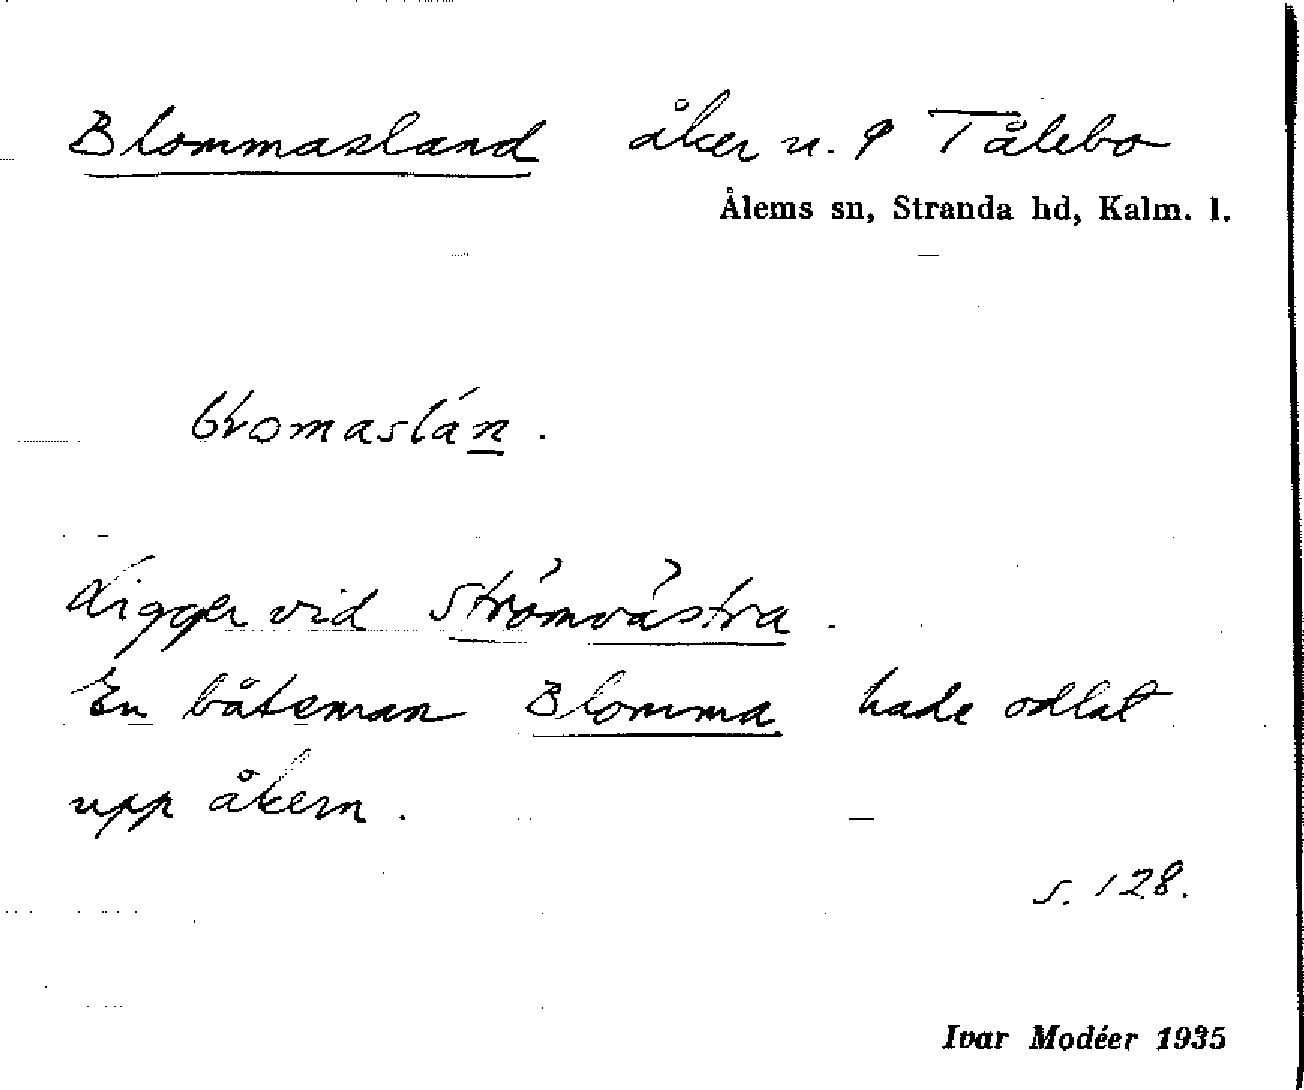 Blommasland åker u. Tålebo
Ålems sn, Stranda hd, Kalm. l.
Ligger vid Strömvästra.
En båtsman Blomma hade odlat
upp åkern.
s. 128.
Ivar Modéer 1935